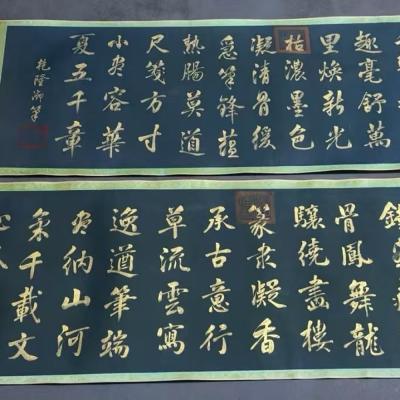 趣毫舒萬
里煥新光
枯濃墨色
凝清骨緩
急筆鋒蘊
熱腸莫道
尺箋方寸
小尽容華
夏五千章
乾隆御筆
骨鳳舞龍
驤繞畫樓
篆隶凝香
承古意行
草流雲寫
逸遒筆端
尽納山河
氣千載文